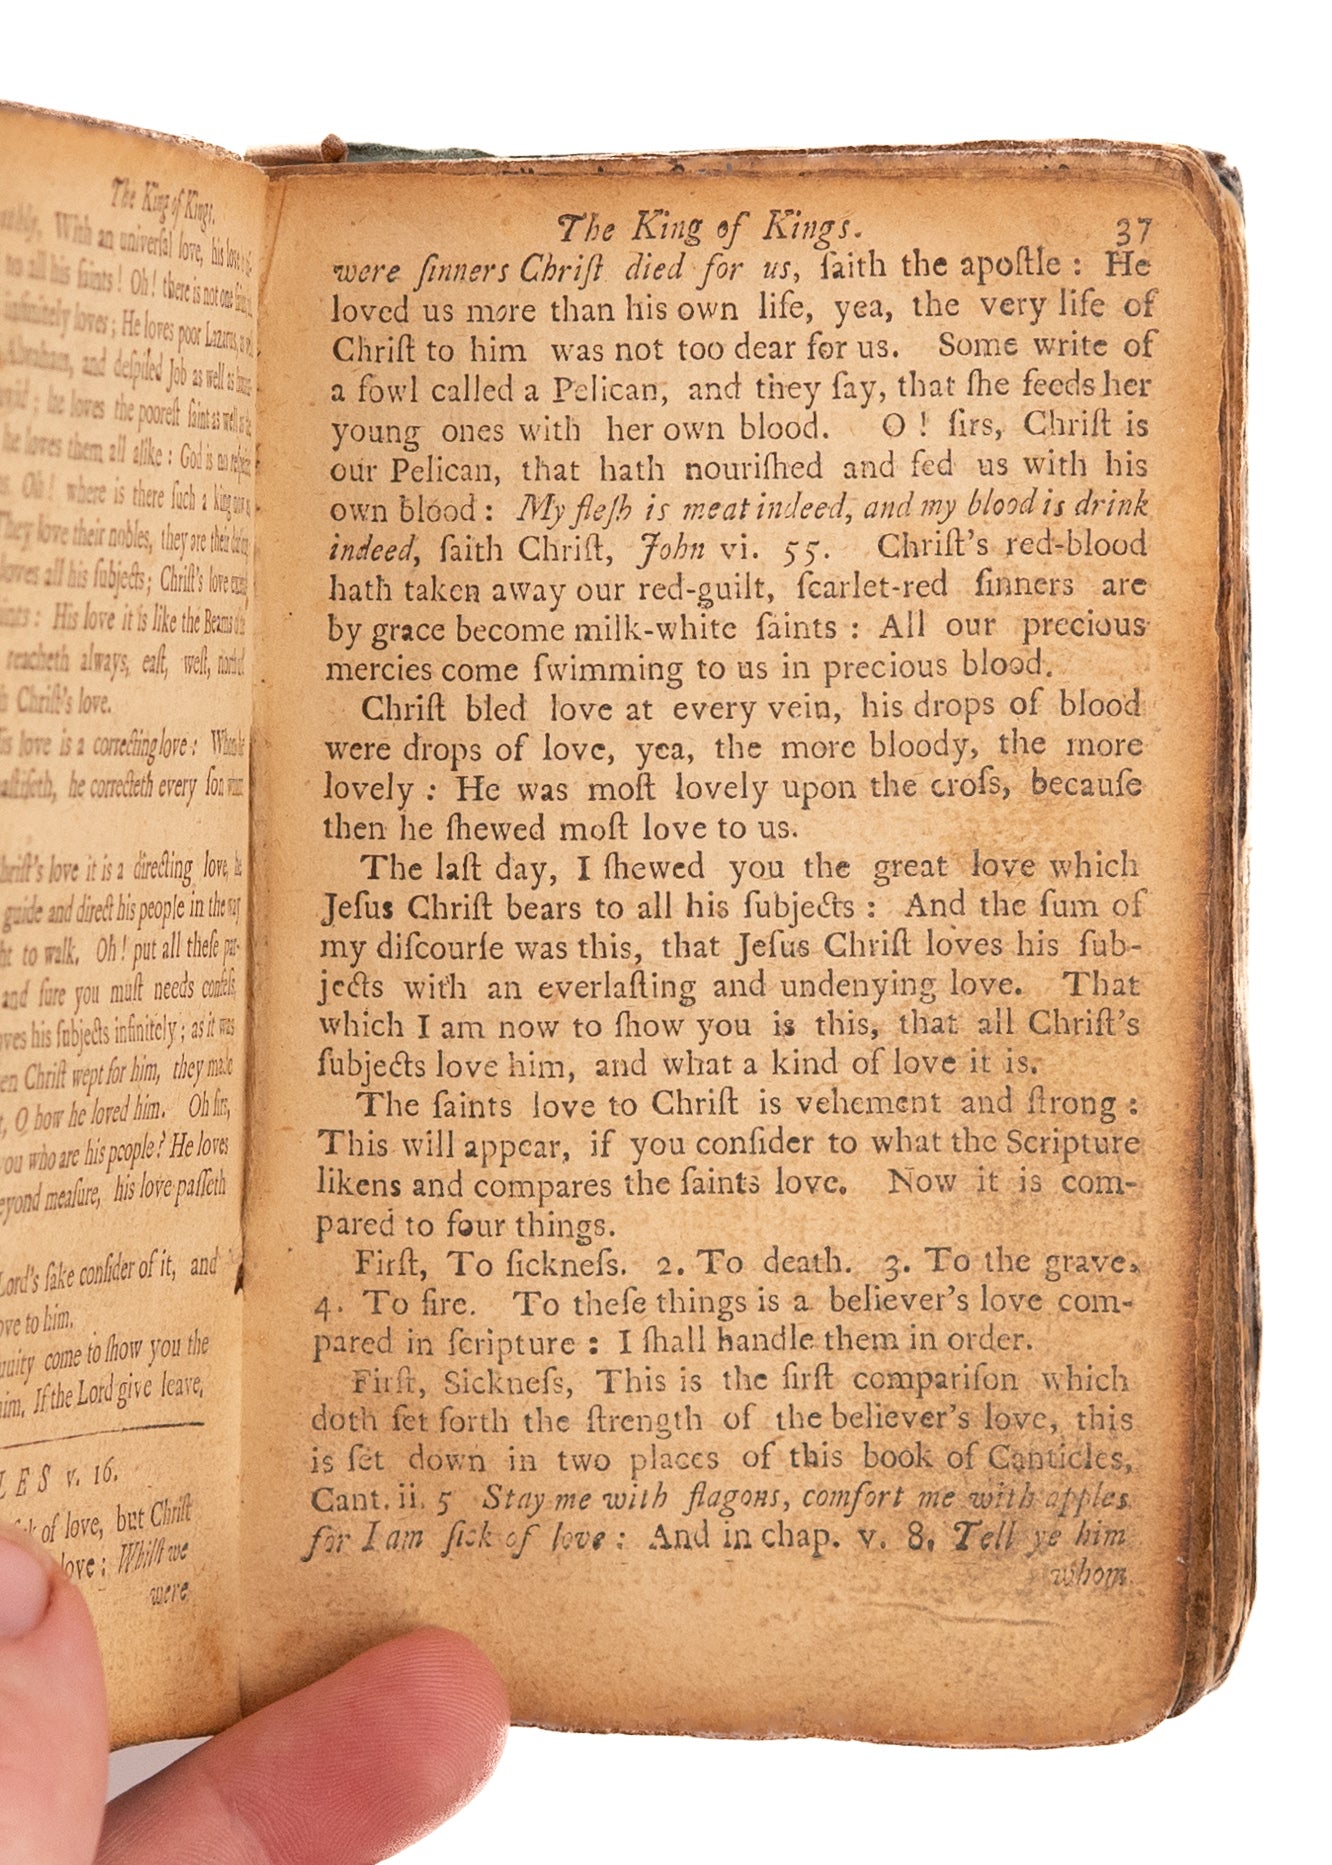 The King of Kings.
With an universal love, his love
to all his ſaints! Oh! there is not one
infinitely loves; He loves poor Lazarus, as
Abraham, and deſpiſed Job as well as
he loves the pooreſt ſaint as well as
he loves them all alike: God is no
Oh! where is there ſuch a king
They love their nobles, they are their
loves all his ſubjects; Chriſt's love
His love it is like the Beams
reacheth always, eaſt, weſt, north
Chriſt's love.
love is a correcting love:
he correcteth every ſon
love it is a directing love, he
guide and direct his people in the way
to walk. Oh! put all theſe par-
and ſure you muſt needs confeſs,
his ſubjects infinitely; as it was
Chriſt wept for him, they made
O how he loved him. Oh ſirs,
you who are his people? He loves
beyond meaſure, his love paſſeth
Lord's ſake conſider of it, and
love to him.
come to ſhow you the
him. If the Lord give leave,
L E S v. 16.
of love, but Chriſt
love: Whilſt we
were
The King of Kings. 37
were ſinners Chriſt died for us, ſaith the apoſtle : He
loved us more than his own life, yea, the very life of
Chriſt to him was not too dear for us. Some write of
a fowl called a Pelican, and they ſay, that ſhe feeds her
young ones with her own blood. O ! ſirs, Chriſt is
our Pelican, that hath nouriſhed and fed us with his
own blood : My fleſh is meat indeed, and my blood is drink
indeed, ſaith Chriſt, John vi. 55. Chriſt's red-blood
hath taken away our red-guilt, ſcarlet-red ſinners are
by grace become milk-white ſaints : All our precious
mercies come ſwimming to us in precious blood.
Chriſt bled love at every vein, his drops of blood
were drops of love, yea, the more bloody, the more
lovely : He was moſt lovely upon the croſs, becauſe
then he ſhewed moſt love to us.
The laſt day, I ſhewed you the great love which
Jeſus Chriſt bears to all his ſubjects : And the ſum of
my diſcourſe was this, that Jeſus Chriſt loves his ſub-
jects with an everlaſting and undenying love. That
which I am now to ſhow you is this, that all Chriſt's
ſubjects love him, and what a kind of love it is.
The ſaints love to Chriſt is vehement and ſtrong :
This will appear, if you conſider to what the Scripture
likens and compares the ſaints love. Now it is com-
pared to four things.
Firſt, To ſickneſs. 2. To death. 3. To the grave.
4. To fire. To theſe things is a believer's love com-
pared in ſcripture : I ſhall handle them in order.
Firſt, Sickneſs, This is the firſt compariſon which
doth ſet forth the ſtrength of the believer's love, this
is ſet down in two places of this book of Canticles,
Cant. ii. 5 Stay me with flagons, comfort me with apples
for I am ſick of love : And in chap. v. 8. Tell ye him
whom